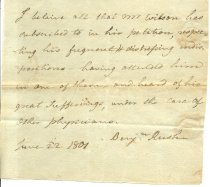 I believe all that Mr Wilson has
submitted to in his petition, respec-
ting his frequent & distressing indis-
positions - having attended him
in one of them, and heard of his
great sufferings, under the care of
other physicians.
Benjn Rush
June 22 1801